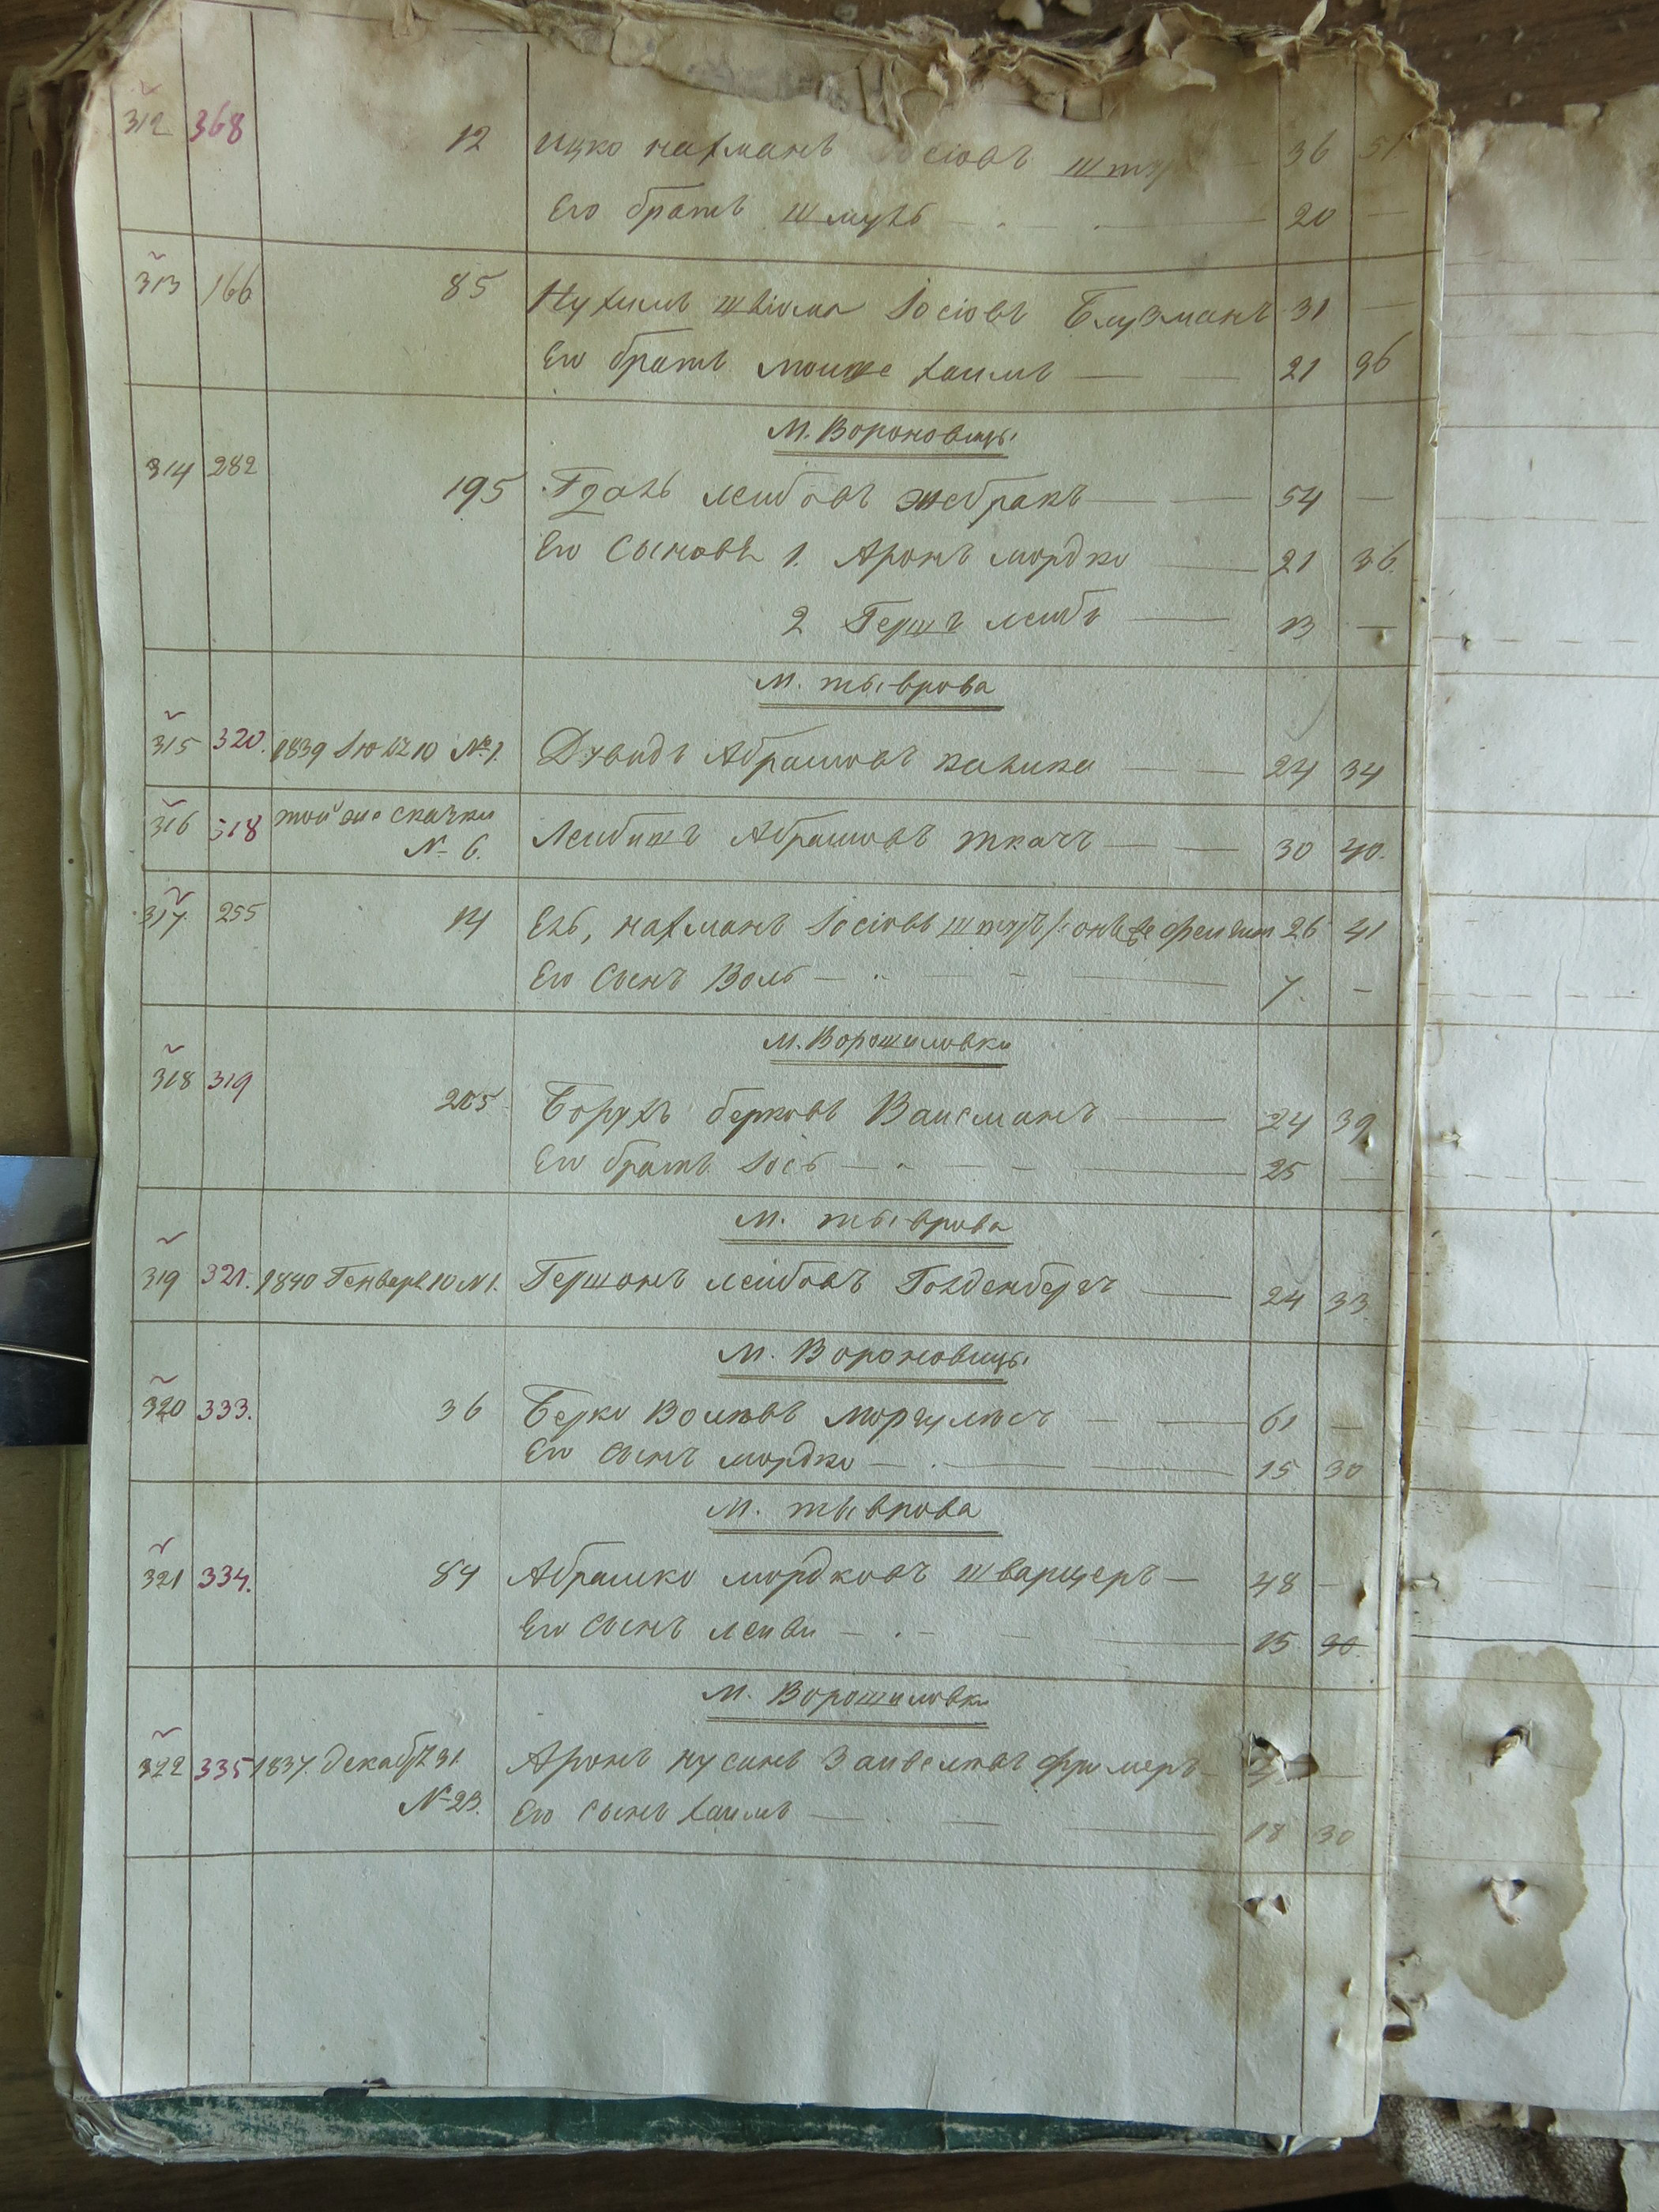 312 368 12 Ицко Нахманъ Іосіовъ 36 51
Его братъ Шмуль 20 —
313 166 85 Нухимъ Шліома Іосіовъ Блузманъ 31 —
Его братъ Мошке Хаимъ 21 36
М. Вороновицы
314 282
195 Гдаль Лейбовъ Жебракъ 54 —
Его Сыновья 1. Аронъ Мордко 21 36.
2 Гершъ Лейбъ 13 —
М. Тыврова
315 320. 1839 Іюля 10 №1. Давидъ Абрамовъ Калика 24 34
316 318 той же скаски
№ 6. Лейбишъ Абрамовъ Ткачъ 30 40.
317. 255 14 Ель, Нахманъ Іосіовъ 26 41
Его Сынъ Воль 7. —
М. Ворошиловки
318 319
205 Борухъ Берковъ Вайсманъ 24 39
Его братъ Іось 25 —
М. Тыврова
319 321. 1840 Генваря 10 №1. Гершонъ Лейбовъ Голденбергъ 24 33
М. Вороновицы
320 333. 36 Берко Волковъ Моргулисъ 61 —
Его Сынъ Мордко 15 30
М. Тыврова
321 334. 84 Абрамко Мордковъ Шварцеръ 48 —
Его Сынъ Лейви 15 30.
М. Ворошиловки
322 335 1837. Декабря 31. Аронъ Нусинъ Зайвелевъ —
№ 23. Его Сынъ Хаимъ 18 30